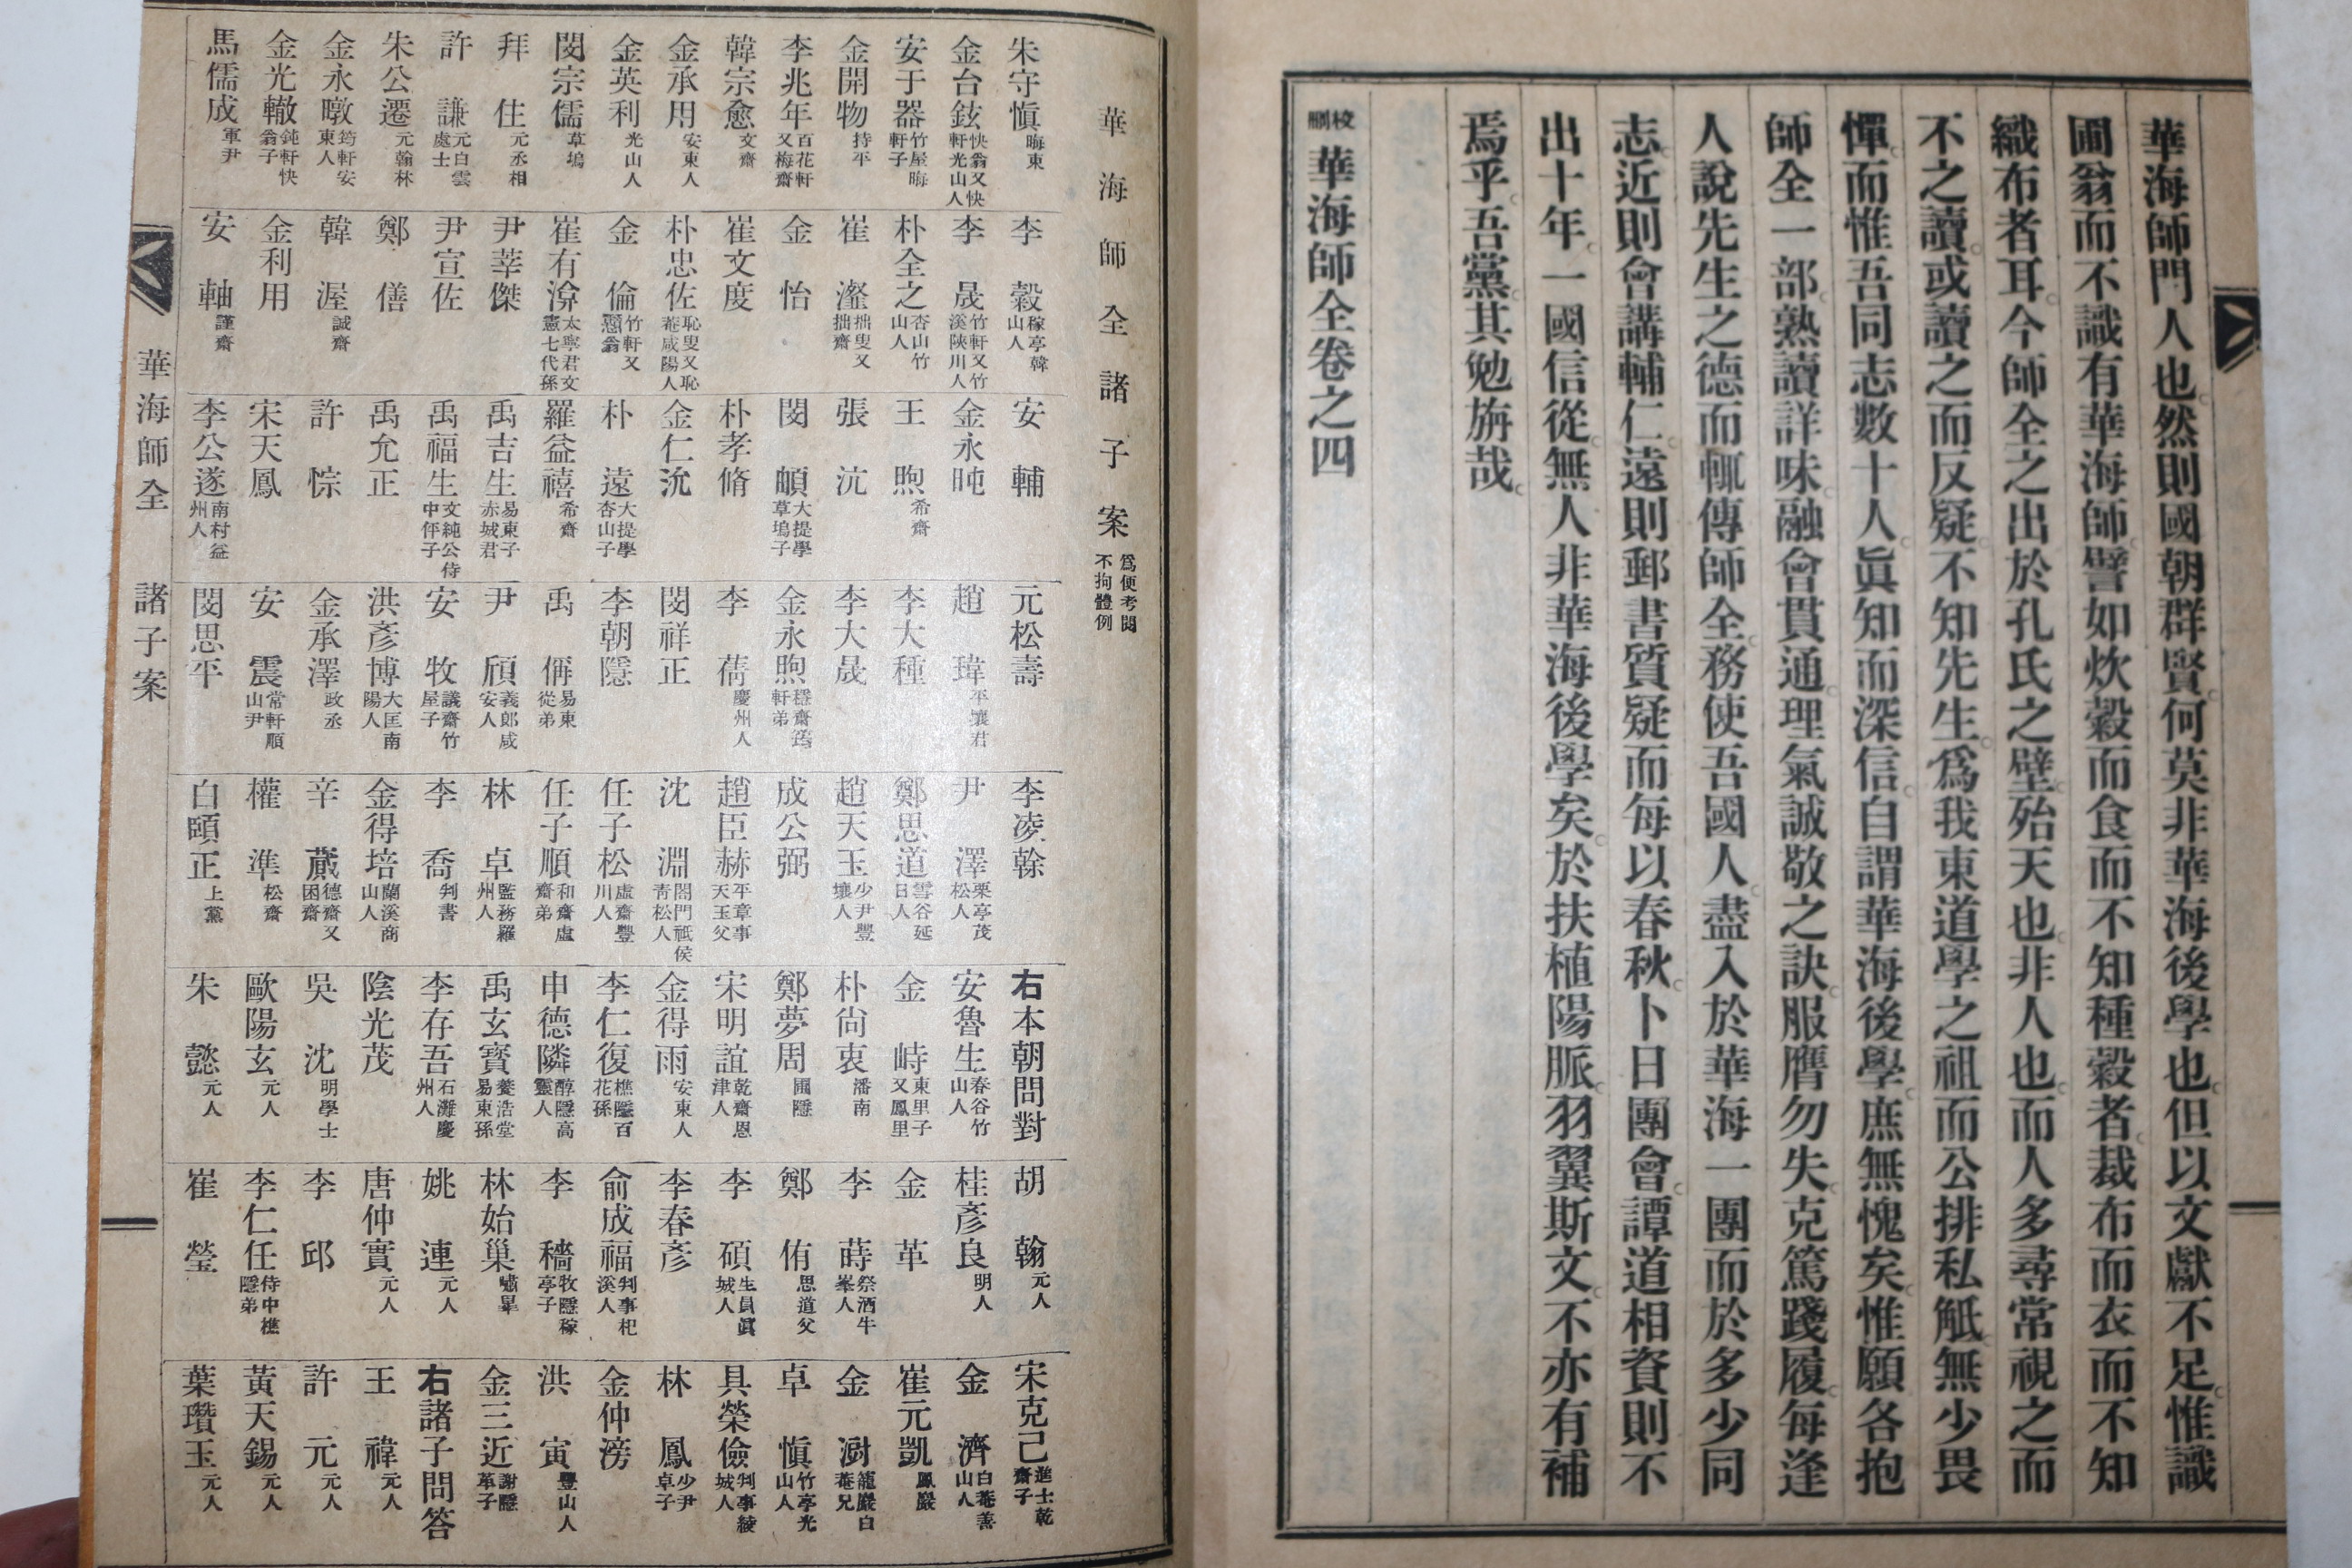 華海師門人也然則國朝群賢何莫非華海後學也但以文獻不足惟識
圃翁而不識有華海師譬如炊穀而食而不知種穀者裁布而衣而不知
織布者耳今師全之出於孔氏之壁殆天也非人也而人多尋常視之而
不之讀或讀之而反疑不知先生爲我東道學之祖而公排私觝無少畏
憚而惟吾同志數十人眞知而深信自謂華海後學庶無愧矣惟願各抱
師全一部熟讀詳味融會貫通理氣誠敬之訣服膺勿失克篤踐履每逢
人說先生之德而輒傳師全務使吾國人盡入於華海一團而於多少同
志近則會講輔仁遠則郵書質疑而每以春秋卜日團會譚道相資則不
出十年一國信從無人非華海後學矣於扶植陽脈羽翼斯文不亦有補
焉乎吾黨其勉旃哉
校刪華海師全卷之四
華海師全諸子案 爲便考閱不拘體例
朱守愼 晦東
金台鉉 快翁又快軒光山人
安于器 竹屋晦軒子
金開物 持平
李兆年 百花軒又梅齋
韓宗愈 文齋
金承用 安東人
金英利 光山人
閔宗儒 草塢
拜住 元丞相
許謙 元白雲處士
朱公遷 元翰林
金永暾 筠軒安東人
金光轍 鈍軒快翁子
馬儒成 軍尹
李穀 稼亭韓山人
李晟 竹軒又竹溪陜川人
朴全之 杏山竹山人
崔瀣 拙叟又拙齋
金怡
崔文度
朴忠佐 恥叟又恥菴咸陽人
金倫 竹軒又戇翁
崔有渰 太寧君文憲七代孫
尹莘傑
尹宣佐
鄭僐
韓渥 誠齋
金利用
安軸 謹齋
安輔
金永旽
王煦 希齋
張沆
閔頔 大提學草塢子
朴孝脩
金仁沇
朴遠 大提學杏山子
羅益禧 希齋
禹吉生 易東子赤城君
禹福生 文純公侍中伻子
禹允正
許悰
宋天鳳
李公遂 南村益州人
元松壽
趙瑋 平壤君
李大種
李大晟
金永煦 穩齋筠軒弟
李蒨 慶州人
閔祥正
李朝隱
禹偁 易東從弟
尹頎 義郞咸安人
安牧 議齋竹屋子
洪彥博 大匡南陽人
金承澤 政丞
安震 常軒順山尹
閔思平
李凌幹
尹澤 栗亭茂松人
鄭思道 雪谷延日人
趙天玉 少尹豐壤人
成公弼
趙臣赫 平章事天玉父
沈淵 閤門祗侯靑松人
任子松 虛齋豐川人
任子順 和齋虛齋弟
林卓 監務羅州人
李喬 判書
金得培 蘭溪商山人
辛蕆 德齋又困齋
權準 松齋
白頤正 上黨
右本朝問對
安魯生 春谷竹山人
金峙 東里子又鳳里
朴尙衷 潘南
鄭夢周 圃隱
宋明誼 乾齋恩津人
金得雨 安東人
李仁復 樵隱百花孫
申德隣 醇隱高靈人
禹玄寶 養浩堂易東孫
李存吾 石灘慶州人
陰光茂
吳沈 明學士
歐陽玄 元人
朱懿 元人
胡翰 元人
桂彥良 明人
金革
李蒔 祭酒牛峯人
鄭侑 思道父
李碩 生員眞城人
李春彥
俞成福 判事杞溪人
李穡 牧隱稼亭子
林始巢 嘯皐
姚連 元人
唐仲實 元人
李邱
李仁任 侍中樵隱弟
崔瑩
宋克己 進士乾齋子
金濟 白菴善山人
崔元凱 鳳巖
金澍 籠巖白菴兄
卓愼 竹亭光山人
具榮儉 判事綾城人
林鳳 少尹卓子
金仲滂
洪寅 豐山人
金三近 謝隱革子
右諸子問答
王禕 元人
許元 元人
黃天錫 元人
葉瓚玉 元人
華海師全 諸子案